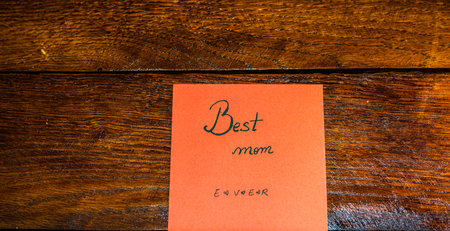 Best
mom
E☆V☆E☆R